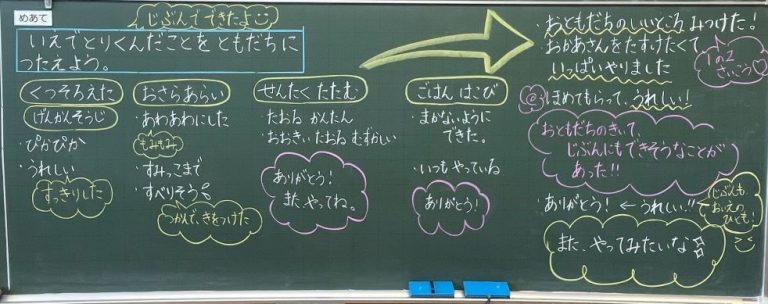 めあて
じぶんで できたよ
いえでとりくんだことを ともだちに
つたえよう。
くつそろえた
げんかんそうじ
・ぴかぴか
・うれしい
すっきりした
おさらあらい
・あわあわにした
もみもみ
・すみっこまで
・すべりそう
つかんで、きをつけた
せんたく たたむ
・たおる かんたん
・おおきい たおる むずかしい
ありがとう!
また やってね。
ごはん はこび
・まがないように
できた。
・いつも やっている
ありがとう!
・おともだちの いいところ みつけた!
・おかあさんを たすけたくて
いっぱいやりました
1の2
さいこう♡
ほめてもらって、うれしい!
おともだちの きいて、
じぶんにも できそうなことが
あった!!
・ありがとう! ← うれしい!!
じぶんも
おいえの
ひとも!
また、やってみたいな